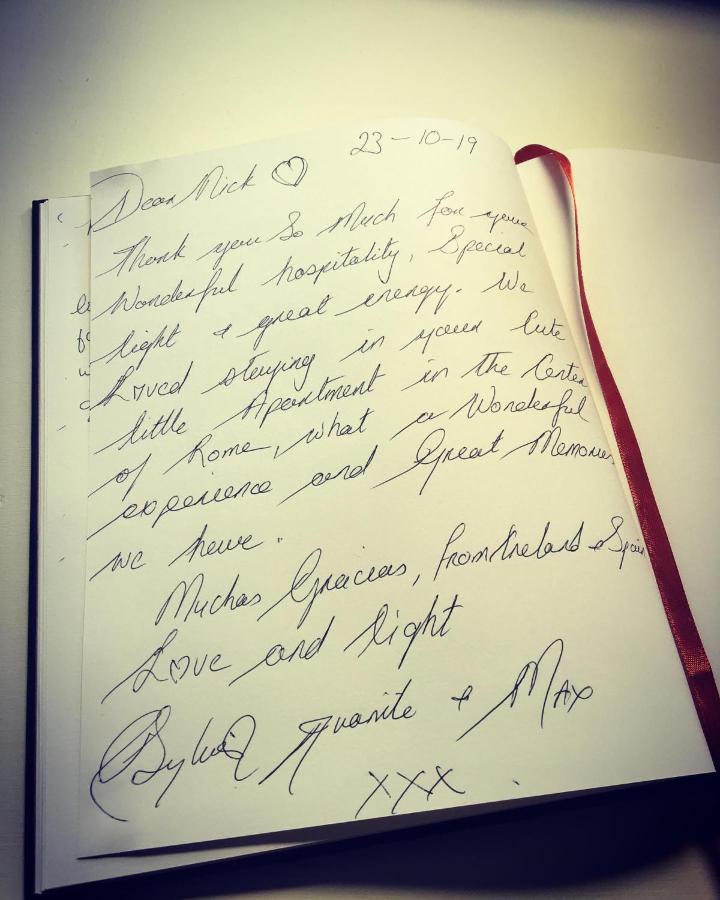 23-10-19
Dear Nick ♡
Thank you So Much for your
Wonderful hospitality, Special
light & great energy. We
Loved staying in your Cute
little Apartment in the Center
of Rome, what a Wonderful
experience and Great Memories
we have.
Muchas Gracias, from Ireland & Spain
Love and light
Sylvia & Max
XXX